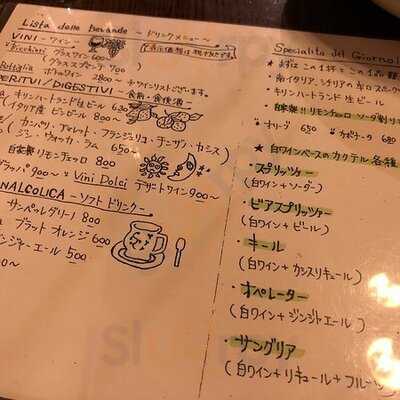 Lista delle Bevande ～ドリンクメニュー～
VINI - ワイン
Bicchieri グラスワイン 600～
(グラススプマンテ 700)
Bottiglia ボトルワイン 2800～ ＋ワインリストございます。
APERITVI/DIGESTIVI ～食前・食後酒～
キリンハートランド生ビール 630
(イタリア産 ビンビール 800～)
カンパリ、アマレット、フランジェリコ、チナール、カシス
ジン、ウォッカ、ラム 650～
自家製リモンチェロ 800
グラッパ 900～ Vini Dolci デザートワイン 900～
ANALCOLICA ～ソフトドリンク～
サンペレグリーノ 800
ブラッドオレンジ 600
ジンジャーエール 500
Specialita del Giorno!
・まずはこの1杯と
・南イタリア、シチリアの辛口スパークリング
・キリンハートランド 生ビール
・自家製!! リモンチェロ ソーダ割り
・オリーブ 630 ・カポナータ 680
★白ワインベースのカクテル各種
・スプリッツァー
(白ワイン＋ソーダー)
・ビアスプリッツァー
(白ワイン＋ビール)
・キール
(白ワイン＋カシスリキュール)
・オペレーター
(白ワイン＋ジンジャエール)
・サングリア
(白ワイン＋リキュール＋フルーツ